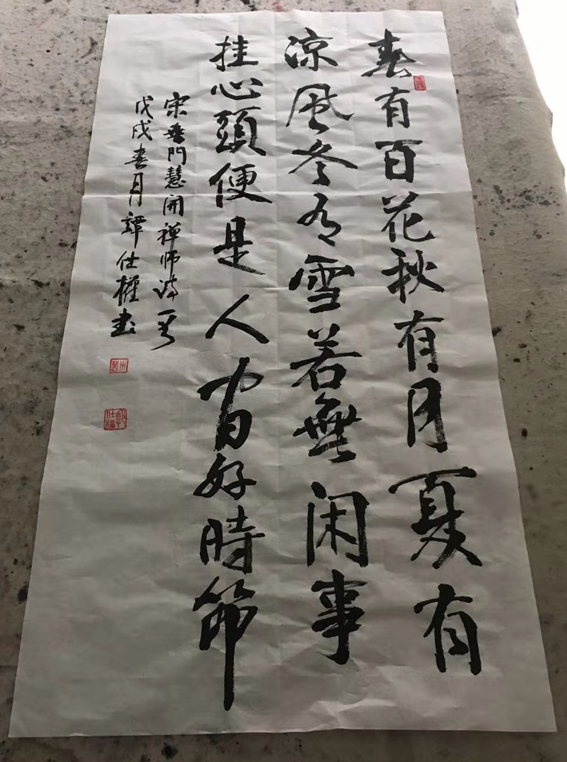 春有百花秋有月夏有
凉風冬有雪若無闲事
挂心頭便是人间好時節
宋無門慧開禅师诗
戊戌春月譚仕權书